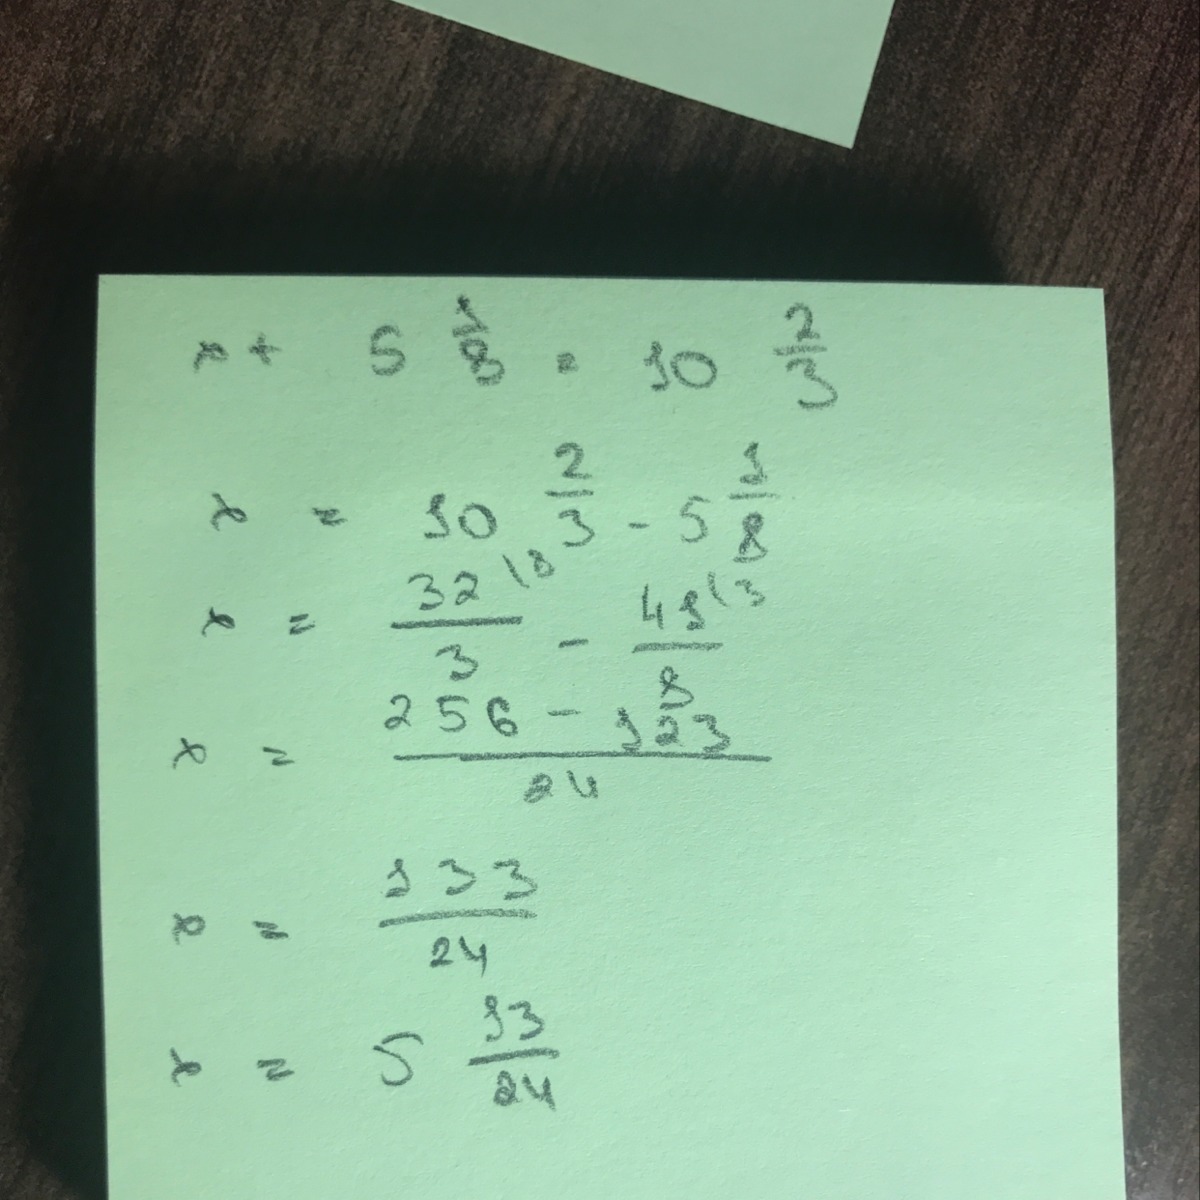 x + 5 1/8 = 10 2/3
x = 10 2/3 - 5 1/8
x = 32/3 (8 - 41/8 (3
x = 256 - 123 / 24
x = 133/24
x = 5 13/24